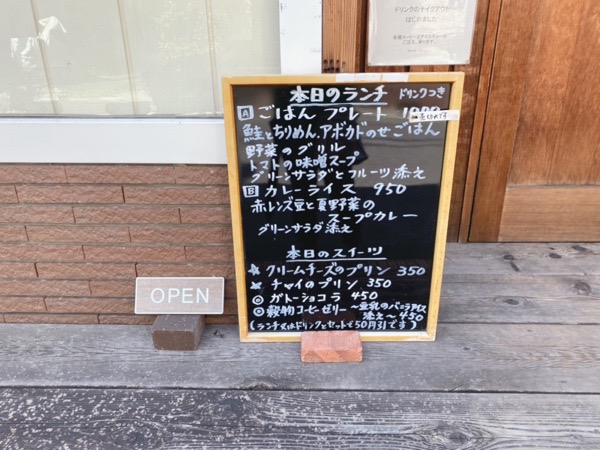 ドリンクのテイクアウト
はじめました
本日のランチ ドリンクつき
A ごはん プレート
売切れです
鮭とちりめん、アボカドのせごはん
野菜のグリル
トマトの味噌スープ
グリーンサラダとフルーツ添え
B カレーライス 950
赤レンズ豆と夏野菜の
スープカレー
グリーンサラダ添え
本日のスイーツ
クリームチーズのプリン 350
チャイのプリン 350
◎ ガトーショコラ 450
◎ 穀物コーヒーゼリー ～豆乳のバニラアイス
添え～ 450
(ランチ又はドリンクとセットで50円引です)
OPEN